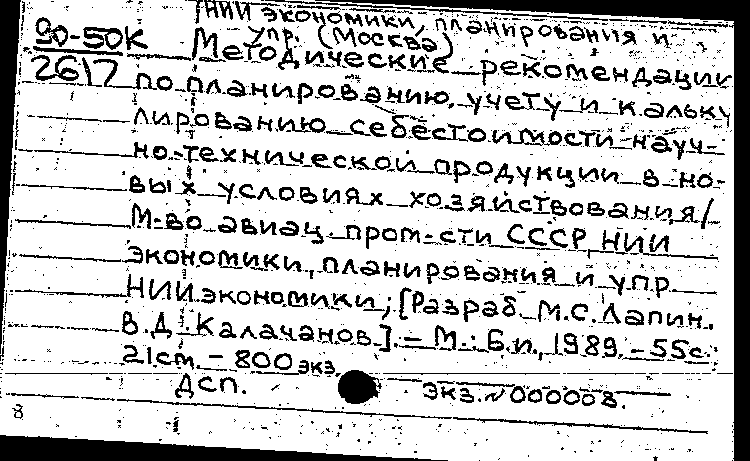 НИИ экономики, планирования и
90-50К
упр. (Москва)
2617
Методические рекомендации
по планированию, учету и кальку
лированию себестоимости науч-
но-технической продукции в но-
вых условиях хозяйствования /
М-во авиац. пром-сти СССР, НИИ
экономики, планирования и упр.
НИИ экономики; [Разраб. М.С. Лапин,
В.Д. Калачанов]. - М.: Б.и., 1989. - 55с.
21см. - 800 экз.
ДСП.
экз. № 000008.
8